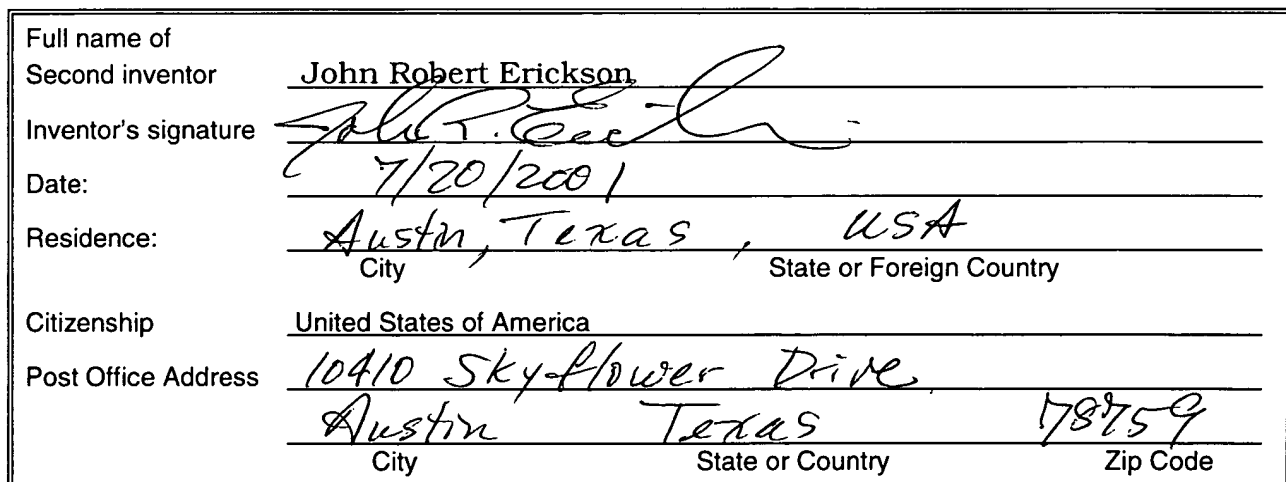 Full name of
Second inventor John Robert Erickson
Inventor's signature John R. Erickson
Date: 7/20/2001
Residence: Austin, Texas, USA
City State or Foreign Country
Citizenship United States of America
Post Office Address 10410 Skyflower Drive
Austin Texas 78759
City State or Country Zip Code